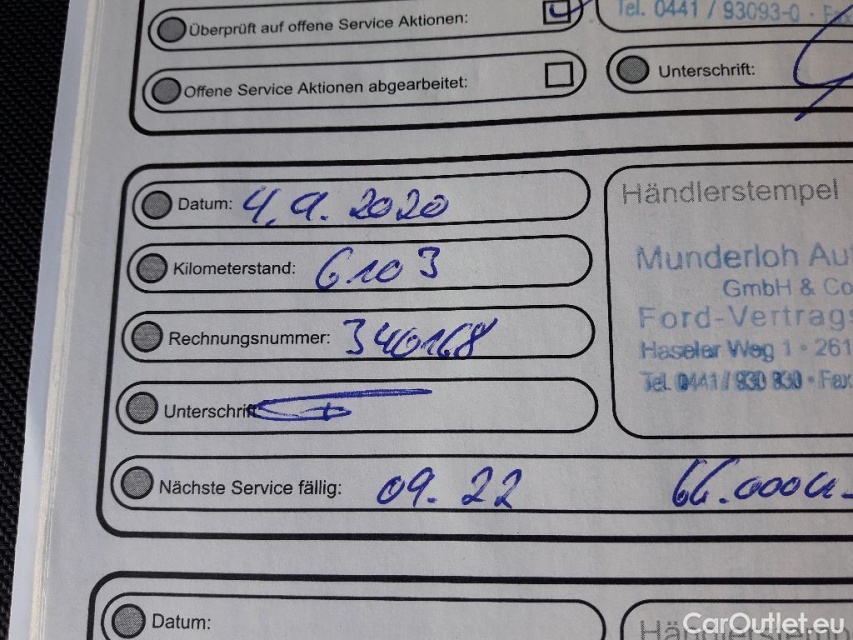 Überprüft auf offene Service Aktionen:
Tel. 0441 / 93093-0 · Fax
Offene Service Aktionen abgearbeitet:
Unterschrift:
Datum: 4.9.2020
Kilometerstand: 6103
Rechnungsnummer: 340168
Unterschrift
Nächste Service fällig: 09.22 66.000
Händlerstempel
Munderloh Au
GmbH & Co
Ford-Vertrags
Haseler Weg 1 · 261
Tel. 0441 / 930 930 · Fax
Datum:
Händlerstem
CarOutlet.eu